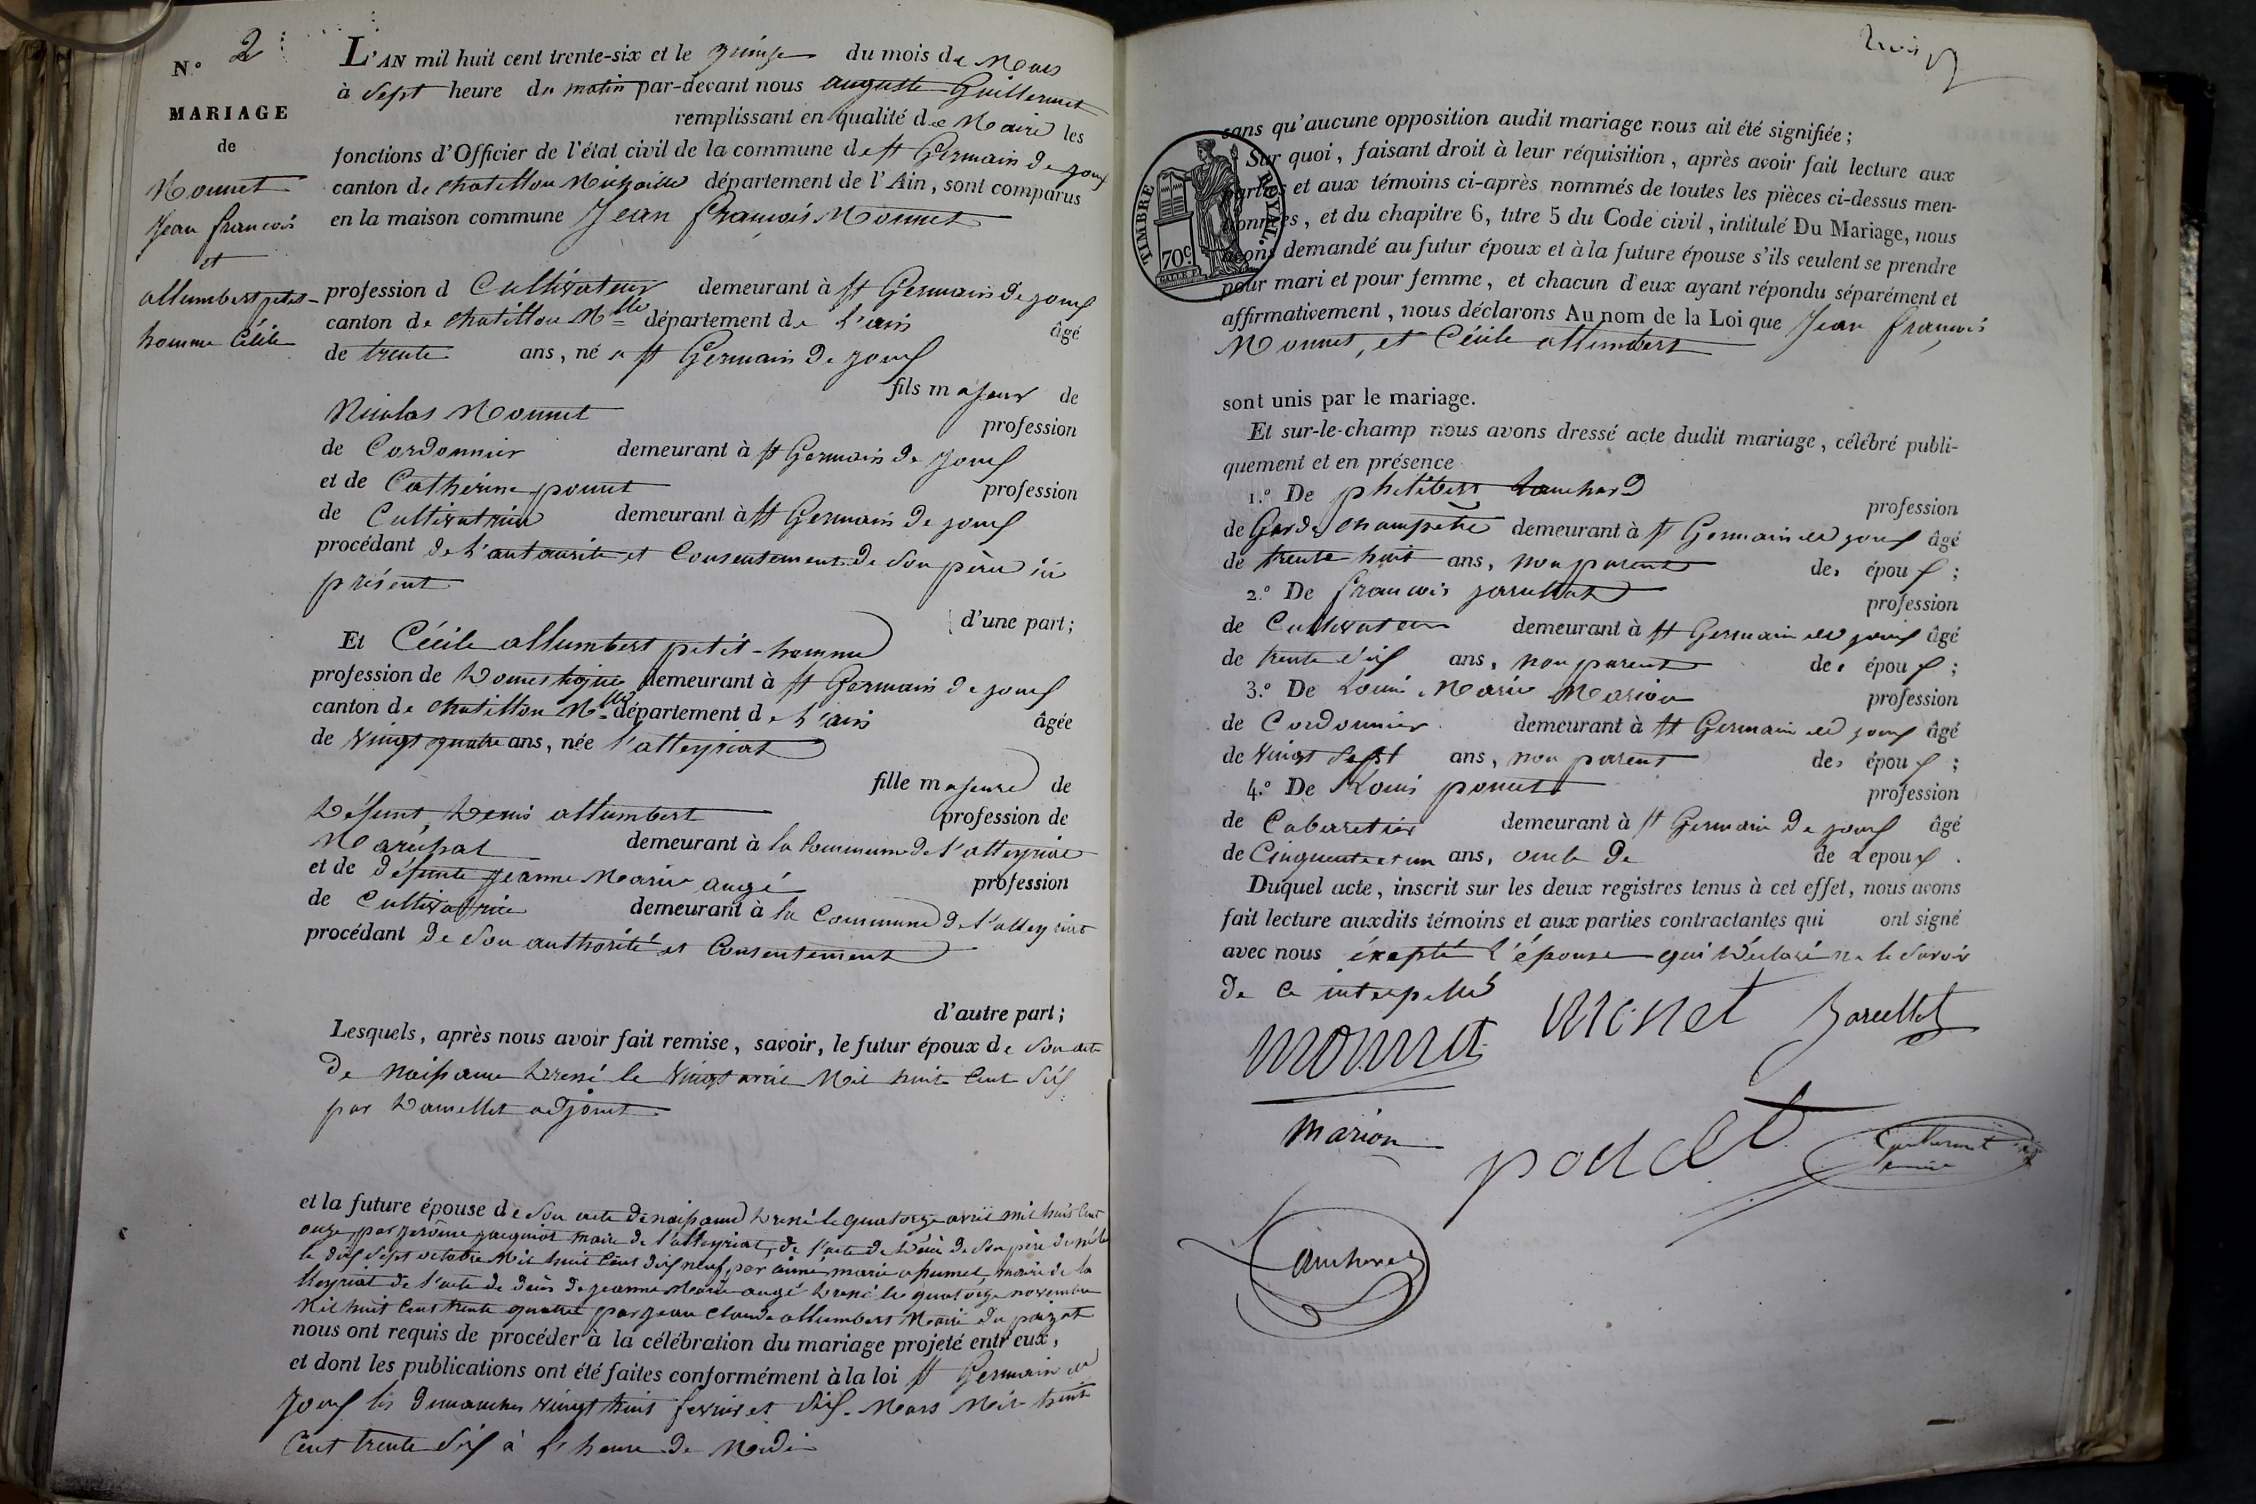 N.° 2
MARIAGE
de
Monnet
Jean françois
et
allumbert petit-
homme Cécile
L'AN mil huit cent trente-six et le quinze du mois de Mars
à Sept heure du matin par-devant nous auguste Guillermet
remplissant en qualité de Maire les
fonctions d'Officier de l'état civil de la commune de st Germain de joux
canton de chatillon Michaille département de l'Ain, sont comparus
en la maison commune Jean françois Monnet
profession d Cultivateur demeurant à st Germain de joux
canton de chatillon Mlle département de l'ain âgé
de trente ans, né a st Germain de joux
fils majeur de
Nicolas Monnet profession
de Cordonnier demeurant à st Germain de joux
et de Catherine poncet profession
de Cultivatrice demeurant à st Germain de joux
procédant de l'autorite et Consentement de Son père ici
présent
d'une part;
Et Cécile allumbert petit-homme
profession de Domestique demeurant à st Germain de joux
canton de chatillon Mlle département de l'ain âgée
de vingt quatre ans, née l'alleyriat
fille majeure de
Défunt, Denis allumbert profession de
Maréchal demeurant à la Commune de l'alleyriat
et de défunte jeanne Marie augé profession
de Cultivatrice demeurant à la Commune de l'alleyriat
procédant de Son authorité et Consentement
d'autre part;
Lesquels, après nous avoir fait remise, savoir, le futur époux de Son acte
de naissance dressé le vingt avril Mil huit Cent Six
par adjoint
et la future épouse de Son acte de naissance dressé le quatorze avril mil huit Cent
onze, par jerôme jacquiot maire de l'alleyriat, de l'acte de décé de Son père
le dix Sept octobre Mil huit Cent dix neuf, par aimé marie maire de la
lleyriat de l'acte de décès de jeanne Marie augé dressé le quatorze novembre
Mil huit Cent trente quatre par jean Claude allumbert Maire du poizat
nous ont requis de procéder à la célébration du mariage projeté entr'eux,
et dont les publications ont été faites conformément à la loi st Germain de
Joux les dimanches vingt huit fevrier et Six Mars Mil huit
Cent trente Six à l'heure de Midi
TIMBRE ROYAL.
70c.
sans qu'aucune opposition audit mariage nous ait été signifiée;
Sur quoi, faisant droit à leur réquisition, après avoir fait lecture aux
parties et aux témoins ci-après nommés de toutes les pièces ci-dessus men-
tionnées, et du chapitre 6, titre 5 du Code civil, intitulé Du Mariage, nous
avons demandé au futur époux et à la future épouse s'ils veulent se prendre
pour mari et pour femme, et chacun d'eux ayant répondu séparément et
affirmativement, nous déclarons Au nom de la Loi que Jean françois
Monnet, et Cécile allumbert
sont unis par le mariage.
Et sur-le-champ nous avons dressé acte dudit mariage, célébré publi-
quement et en présence
1.° De philibert profession
de Garde champetre demeurant à st Germain de joux âgé
de trente huit ans, non parent des époux;
2.° De françois profession
de Cultivateur demeurant à st Germain de joux âgé
de trente Six ans, non parent des époux;
3.° De Louis Marie Marion profession
de Cordonnier demeurant à st Germain de joux âgé
de vingt Sept ans, non parent des époux;
4.° De Louis poncet profession
de Cabaretier demeurant à st Germain de joux âgé
de Cinquante et un ans, oncle de de Lepoux.
Duquel acte, inscrit sur les deux registres tenus à cet effet, nous avons
fait lecture auxdits témoins et aux parties contractantes qui ont signé
avec nous éxepté l'épouse qui déclaré ne le Savoir
de Ce interpellé
monnet monet
Marion poncet Guillermet
maire